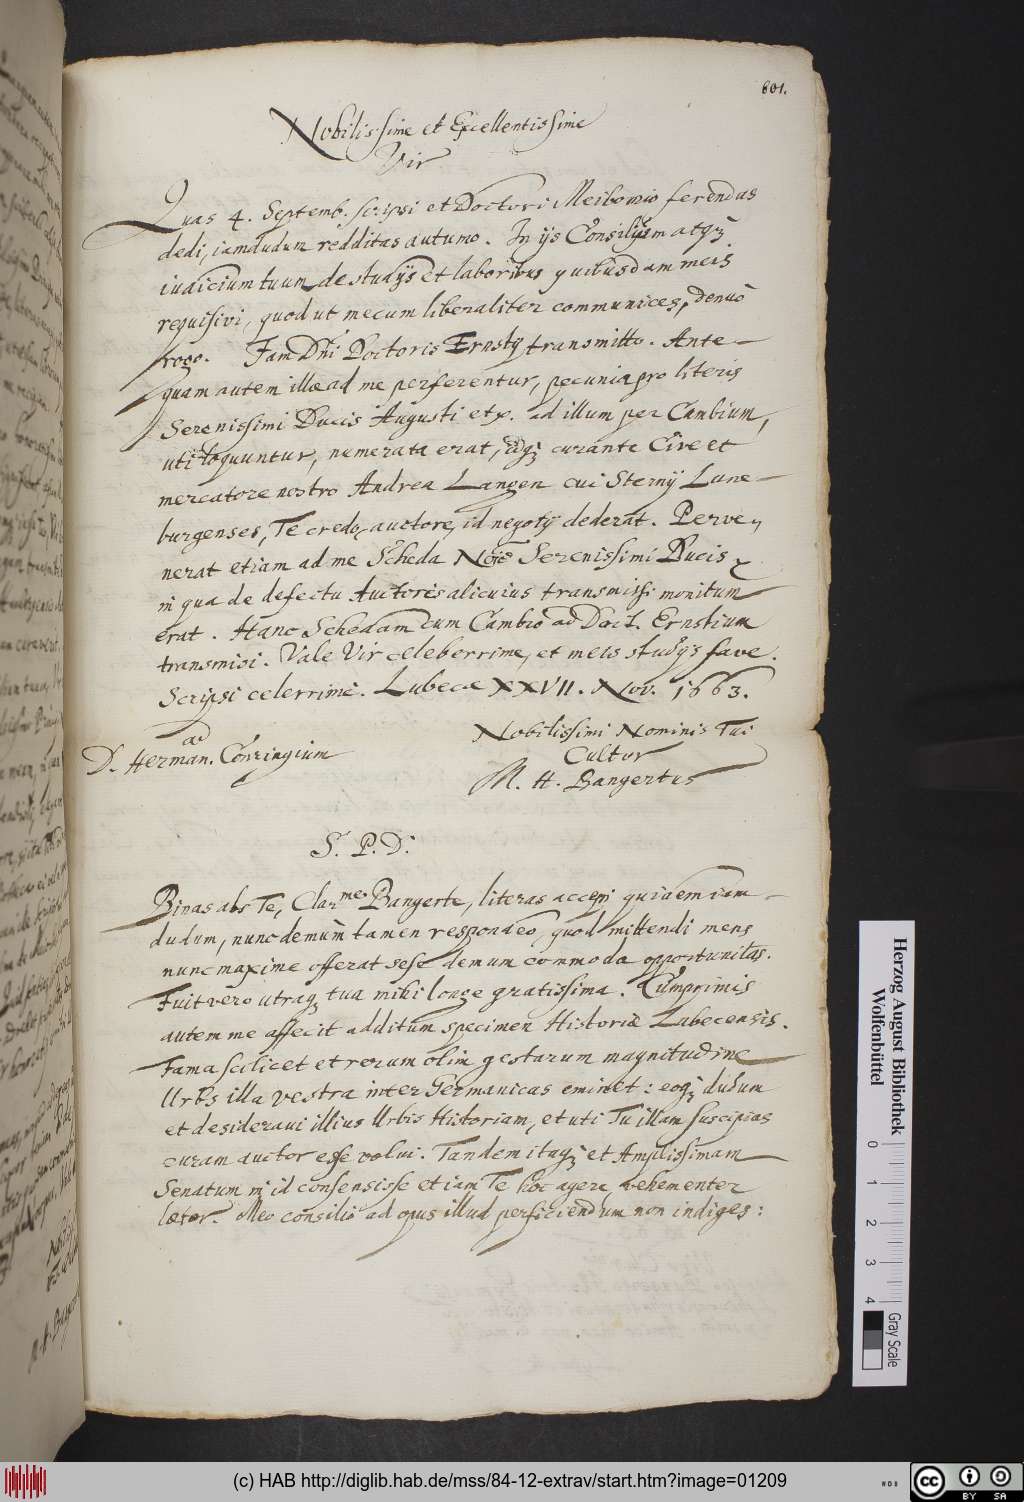 601.
Nobilissime et Excellentissime
Vir
Quas 4. Septemb. scripsi et Doctori Meibomio ferendas
dedi, iamdudum redditas autumo. In ijs Consilium atq;
iudicium tuum de studijs et laboribus quibusdam meis
requisivi, quod ut mecum liberaliter communices, denuò
rogo. Iam Dni Doctoris Ernstij transmitto. Ante-
quam autem illæ ad me perferentur, pecunia pro literis
Serenissimi Ducis Augusti etx. ad illum per Cambium,
uti loquuntur, numerata erat, idq; curante Cive et
mercatore nostro Andrea Langen cui Sternij Lune-
burgenses, Te credo, auctore, id negotij dederat. Perve-
nerat etiam ad me Scheda Serenissimi Ducis
in qua de defectu Auctoris alicuius transmissi monitum
erat. Hanc Schedam cum Cambio ad Doct. Ernstium
transmisi. Vale Vir celeberrime, et meis studijs fave.
Scripsi celerrimè. Lubecæ XXVII. Nov. 1663.
Nobilissimi Nominis Tui
Cultor
M. H. Bangertus
ad
D. Herman. Conringium
S. P. D.
Binas abs Te, Clarme Bangerte, literas accepi quidem iam-
dudum, nunc demùm tamen respondeo, quod mittendi mens
nunc maxime offerat sese demum commoda opportunitas.
Fuit vero utraq; tua mihi longe gratissima. Cumprimis
autem me affecit additum specimen Historiæ Lubecensis.
Fama scilicet et rerum olim gestarum magnitudine
Urbs illa vestra inter Germanicas eminet: eoq; dudum
et desideravi illius Urbis Historiam, et uti Tu illam suscipias
curam auctor esse volui. Tandem itaq; et Amplissimam
Senatum in id consensisse et iam Te hoc agere vehementer
lætor. Meo consilio ad opus illud perficiendum non indiges:
Herzog August Bibliothek
Wolfenbüttel
0 1 2 3 4
Gray Scale
(c) HAB http://diglib.hab.de/mss/84-12-extrav/start.htm?image=01209
cc BY SA